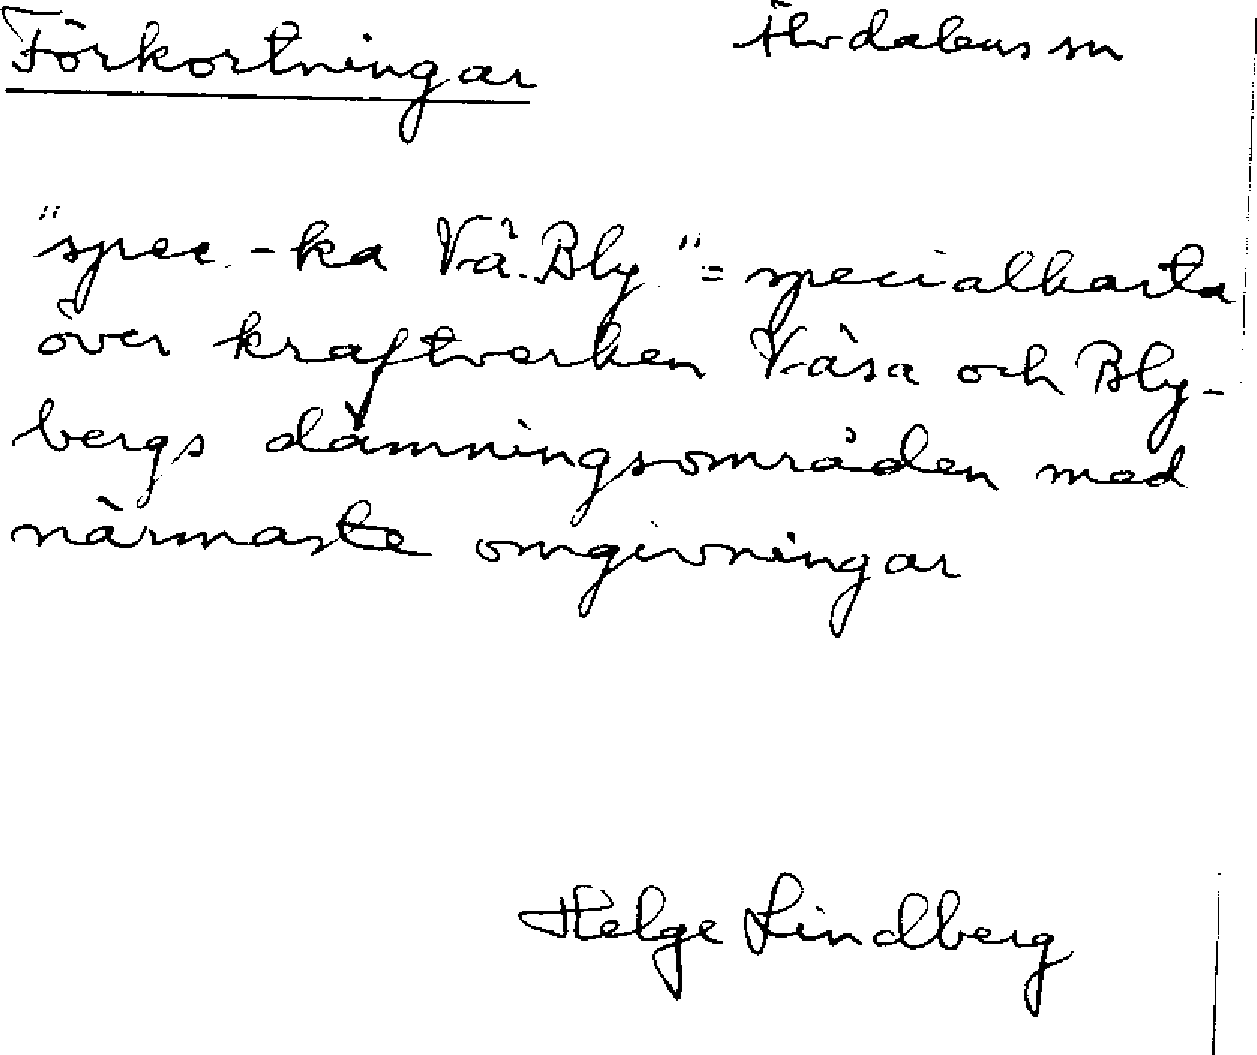 Förkortningar
Älvdalens sn
"spec.-ka Vå.Bly." = specialkarta
över kraftverken Våsa och Bly-
bergs dämningsområden med
närmaste omgivningar
Helge Lindberg